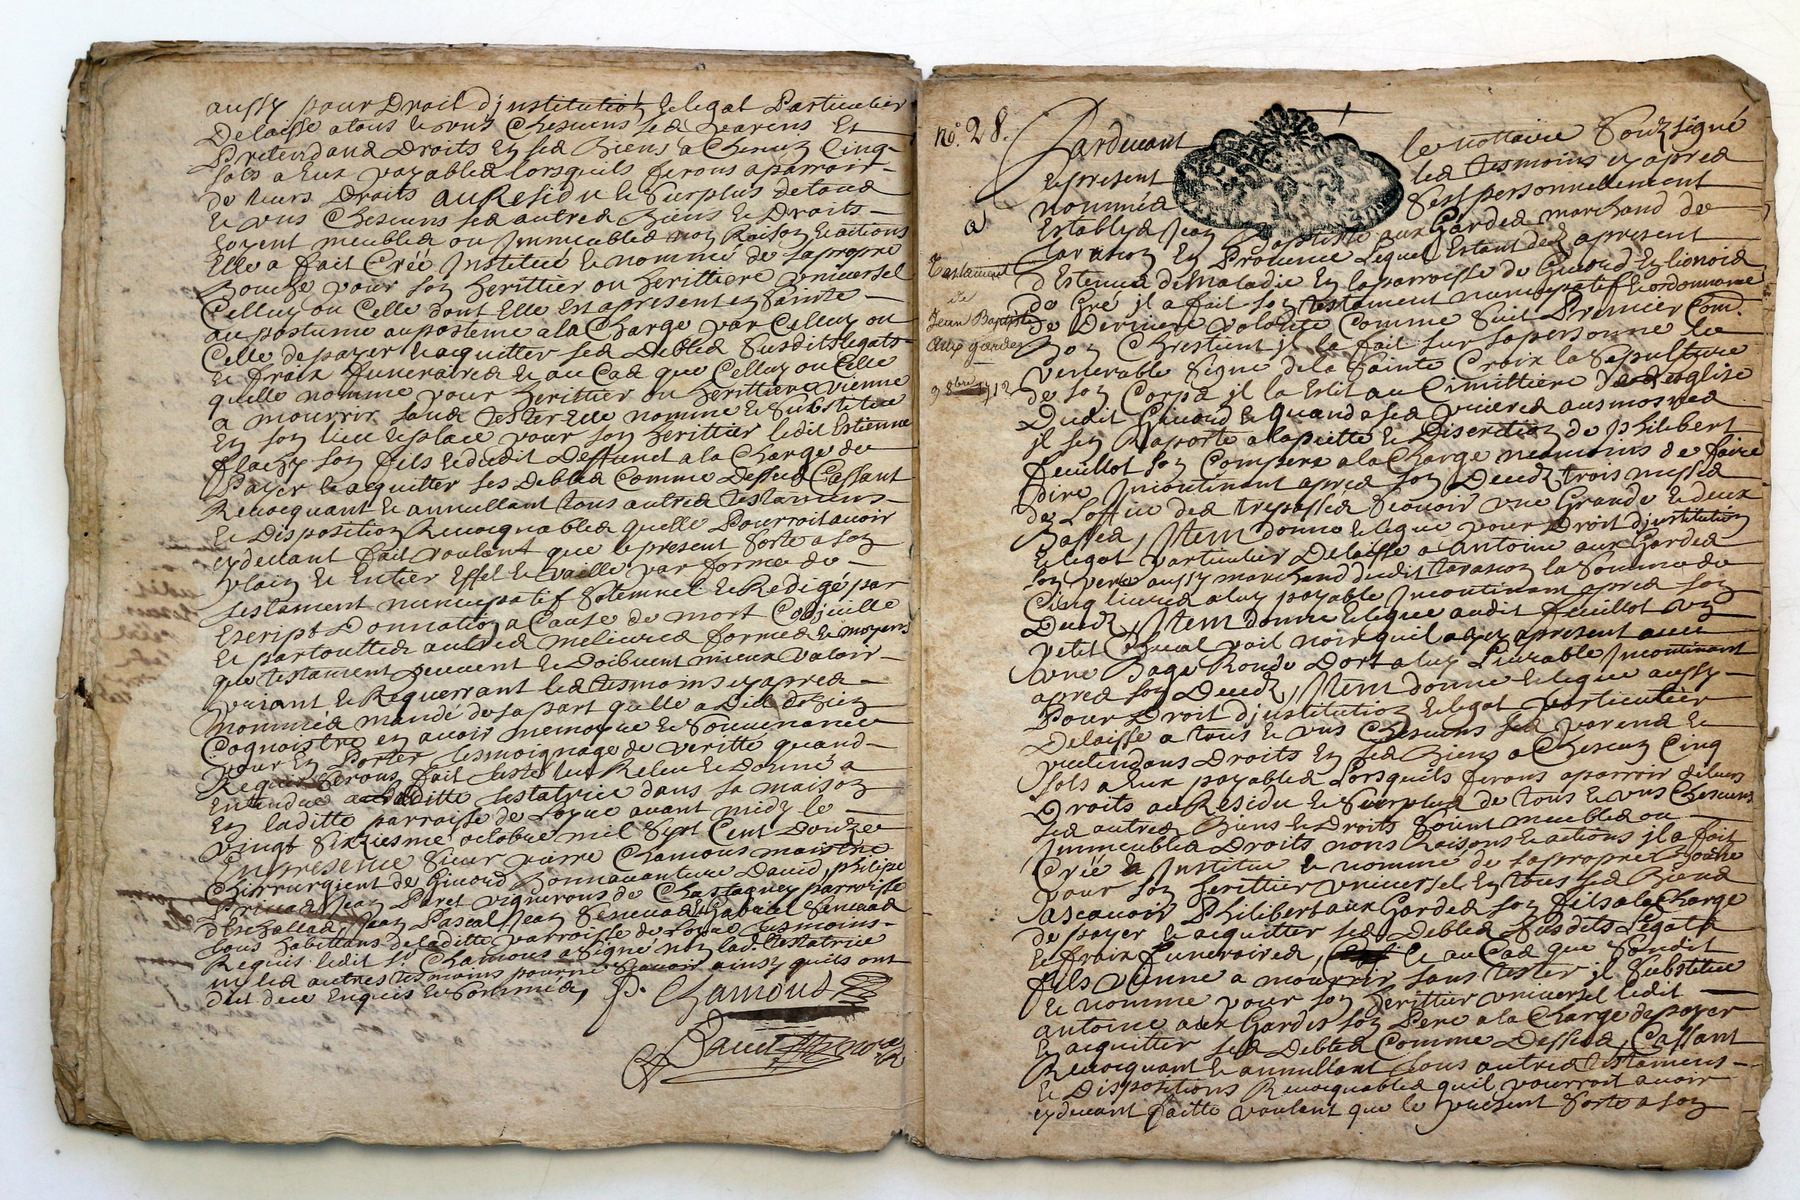 aussy pour Droit d'institution & legat Particulier
Delaisse a tous & uns Chescuns sed parens Et
Pretendand Droits En sed Biens a Chescun Cinq
sols a Eux payables lorsquils ferons aparroir
de leurs Droits au Residu & Surplus de tous
& uns Chescuns sed autred Biens & Droits
soyent meubled ou Immeubled nom Raison & actions
Elle a fait Créé Institue & nomme de sa propre
Bouche pour son herittier ou herittiere Universel
Celluy ou Celle dont Elle Est apresent Enceinte
au postume ou posteme a la Charge par Celluy ou
Celle de payer & acquitter sed Debted Susdits legats
& fraix funeraired & au Cad que Celluy ou Celle
quelle nomme pour herittier ou herittiere vienne
a mourrir sand tester Elle nomme & Substitue
En son lieu & place pour son herittier ledit Estienne
son fils & dudit Deffunct a la Charge de
Payer & acquitter ses Debted Comme Dessud Cassant
Revocquant & annullant tous autred testamens
& Disposition Revocquabled quelle Pourroit avoir
cy devant fait voulant que le present Sorte a son
plain & Entier Effet & vaille par forme de
testament nuncupatif Solemnel & Redigé par
Escript Donnation a Cause de mort Codicille
& par touttes autred melieures formed & moyens
que testament peuvent & Doibvent mieux valoir
priant & Requerrant led tesmoins cy apred
nommed mandé de sa part quelle a Dit Bien
Cognoistre en avoir memoyre & Souvenance
pour En Porter tesmoignage de veritté quand
Requis Serons fait Leu Releu & Donné a
Entendre a laditte testatrice dans sa maison
En laditte parroisse de Loyre avant midy le
vingt Sixiesme octobre mil Sept Cent Douze
En presence Sieur pierre Chamous maistre
Chirrurgient de Givord Bonnavanture David, philipe
Privad Jean Peret vignerons de Chassagney parroisse
d'Eschallad Jean Pascal Jean Senevad & Gabriel Senevad
tous habittans de laditte parroisse de Loyre tesmoins
Requis ledit Sr Chamous a Signé non lad. testatrice
ny led autres tesmoins pour ne Scavoir ainsy quils ont
dit de ce Enquis & Sommed,
P. Chamous
No. 28.
a
Testament
de
Jean Baptiste
aux gardes
3 8bre 1712
Pardevant le nottaire Soubzsigné
& present led tesmoins cy apred
nommed Sest personnellement
Estably Jean Baptiste aux Garded marchand de
tarascon En Provence Lequel Estant dez apresent
destenud de maladie En la parroisse de Givord En lionoid
de Gré il a fait son testament nuncupatif & ordonnance
de Derniere volonté Comme Suit Premier Com.
bon Chrestient il la fait sur sa personne le
venerable Signe de la Sainte Croix la Sepulture
de son Corps il la Eslit au Cimittiere de lesglise
Dudit Givord & quand a sed prieres aumosned
il sen Raporte a la piette & Discretion de philibert
feuillot son Compere a la Charge neanmoins de faire
dire Incontinent apred son Deced trois messed
de Loffice ded trepassed Scavoir une Grande & deux
Bassed, Item donne & legue pour Droit d'institution
& legat particulier Delaisse a antoine aux Garded
son pere aussy marchand dudit tarascon la Somme de
Cinq livred a luy payable Incontinant apred son
Deced, Item donne & legue audit feuillot un
petit Cheval poil noir quil a apresent avec
une Bage Ronde Dort a luy Livrable Incontinant
apred son Deced, Item donne & legue aussy
Pour Droit d'institution & legat particulier
Delaisse a tous & uns Chescuns sed parend &
pretendans Droits En sed Biens a Chescun Cinq
sols a Eux payabled Lorsquils ferons aparroir de leurs
Droits au Residu & Surplus de tous & uns Chescuns
sed autred Biens & Droits Soient meubled ou
Immeubled Droits noms Raisons & actions il a fait
Créé & Institue & nomme de sa propre Bouche
pour son herittier universel En tous sed Biend
ascavoir Philibert aux Garded son fils a la Charge
de payer & acquitter sed Debted Susdits Legats
& fraix funeraired, & au Cad que Sondit
fils vienne a mourrir sans tester il Substitue
& nomme pour son herittier universel ledit
antoine aux Gardes son Pere a la Charge de payer
& acquitter sed Debted Comme Dessud, Cassant
Revocquant & annullant tous autred testamens
& Dispositions Revocquabled quil pourroit avoir
cy devant faitte voulant que le present Sorte a son